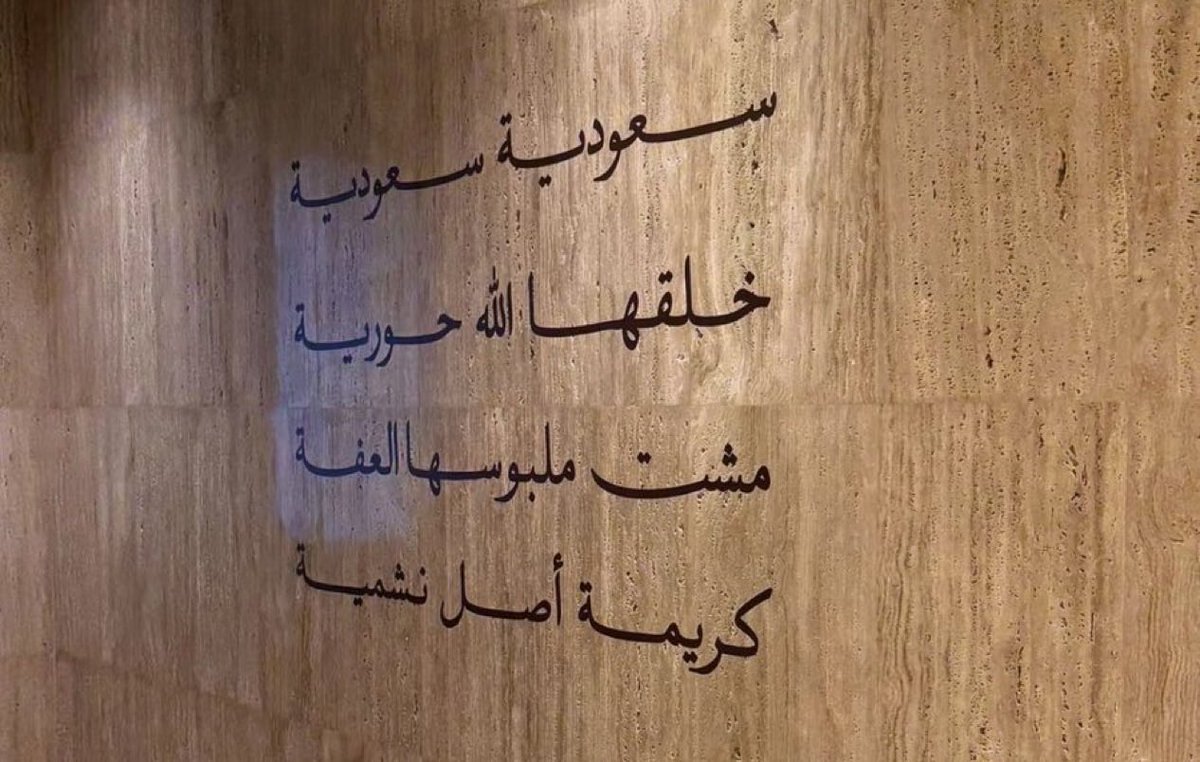 سعودية سعودية
خلقها الله حورية
مشت ملبوسها العفة
كريمة أصل نشمية